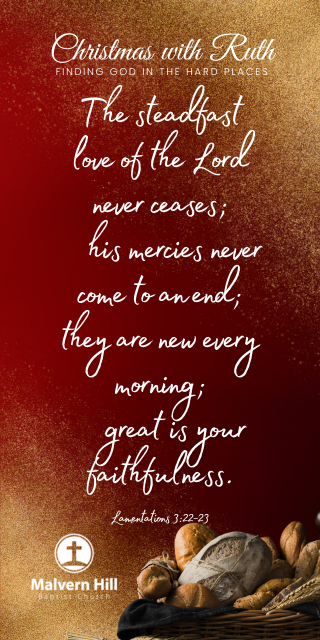 Christmas with Ruth
FINDING GOD IN THE HARD PLACES
The steadfast
love of the Lord
never ceases;
his mercies never
come to an end;
they are new every
morning;
great is your
faithfulness.
Lamentations 3:22-23
Malvern Hill
Baptist Church